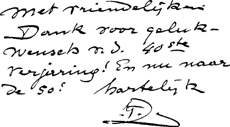 Met vriendelijken
Dank voor geluk-
wensch v.d. 40ste
verjaring! En nu naar
de 50!   hartelijk
T.D.